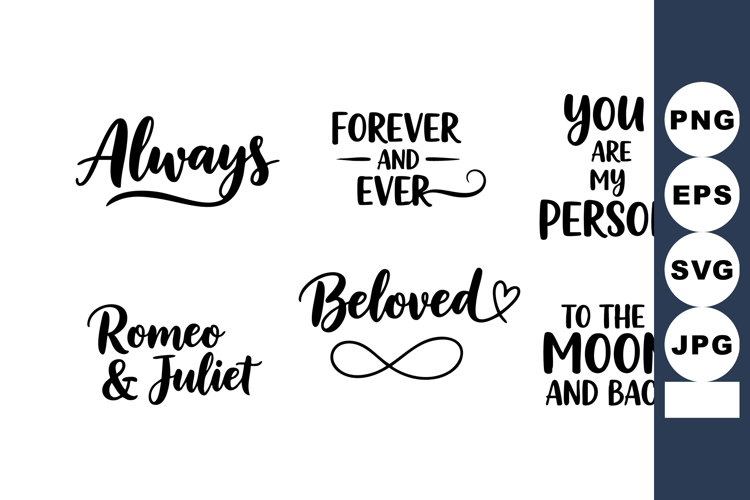 Always
FOREVER
AND
EVER
YOU
ARE
MY
PERSO
Romeo
& Juliet
Beloved
TO THE
MOO
AND BAC
PNG
EPS
SVG
JPG